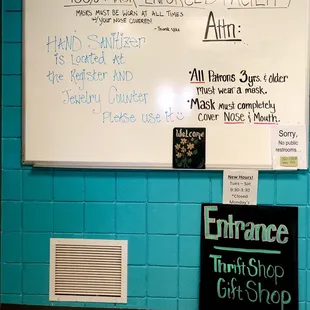 100% MASK ENFORCED FACILITY
MASKS MUST BE WORN AT ALL TIMES
-your NOSE COVERED!
-Thank you
HAND Sanitizer
is Located at
the Register AND
Jewelry Counter
Please use it
Attn:
*All Patrons 3yrs. & older
must wear a mask.
*Mask must completely
cover NOSE & Mouth.
Welcome
Sorry,
no public
restrooms...
New Hours!
Tues - Sat
9:30-3:30
*Closed
Monday's
Entrance
Thrift Shop
Gift Shop